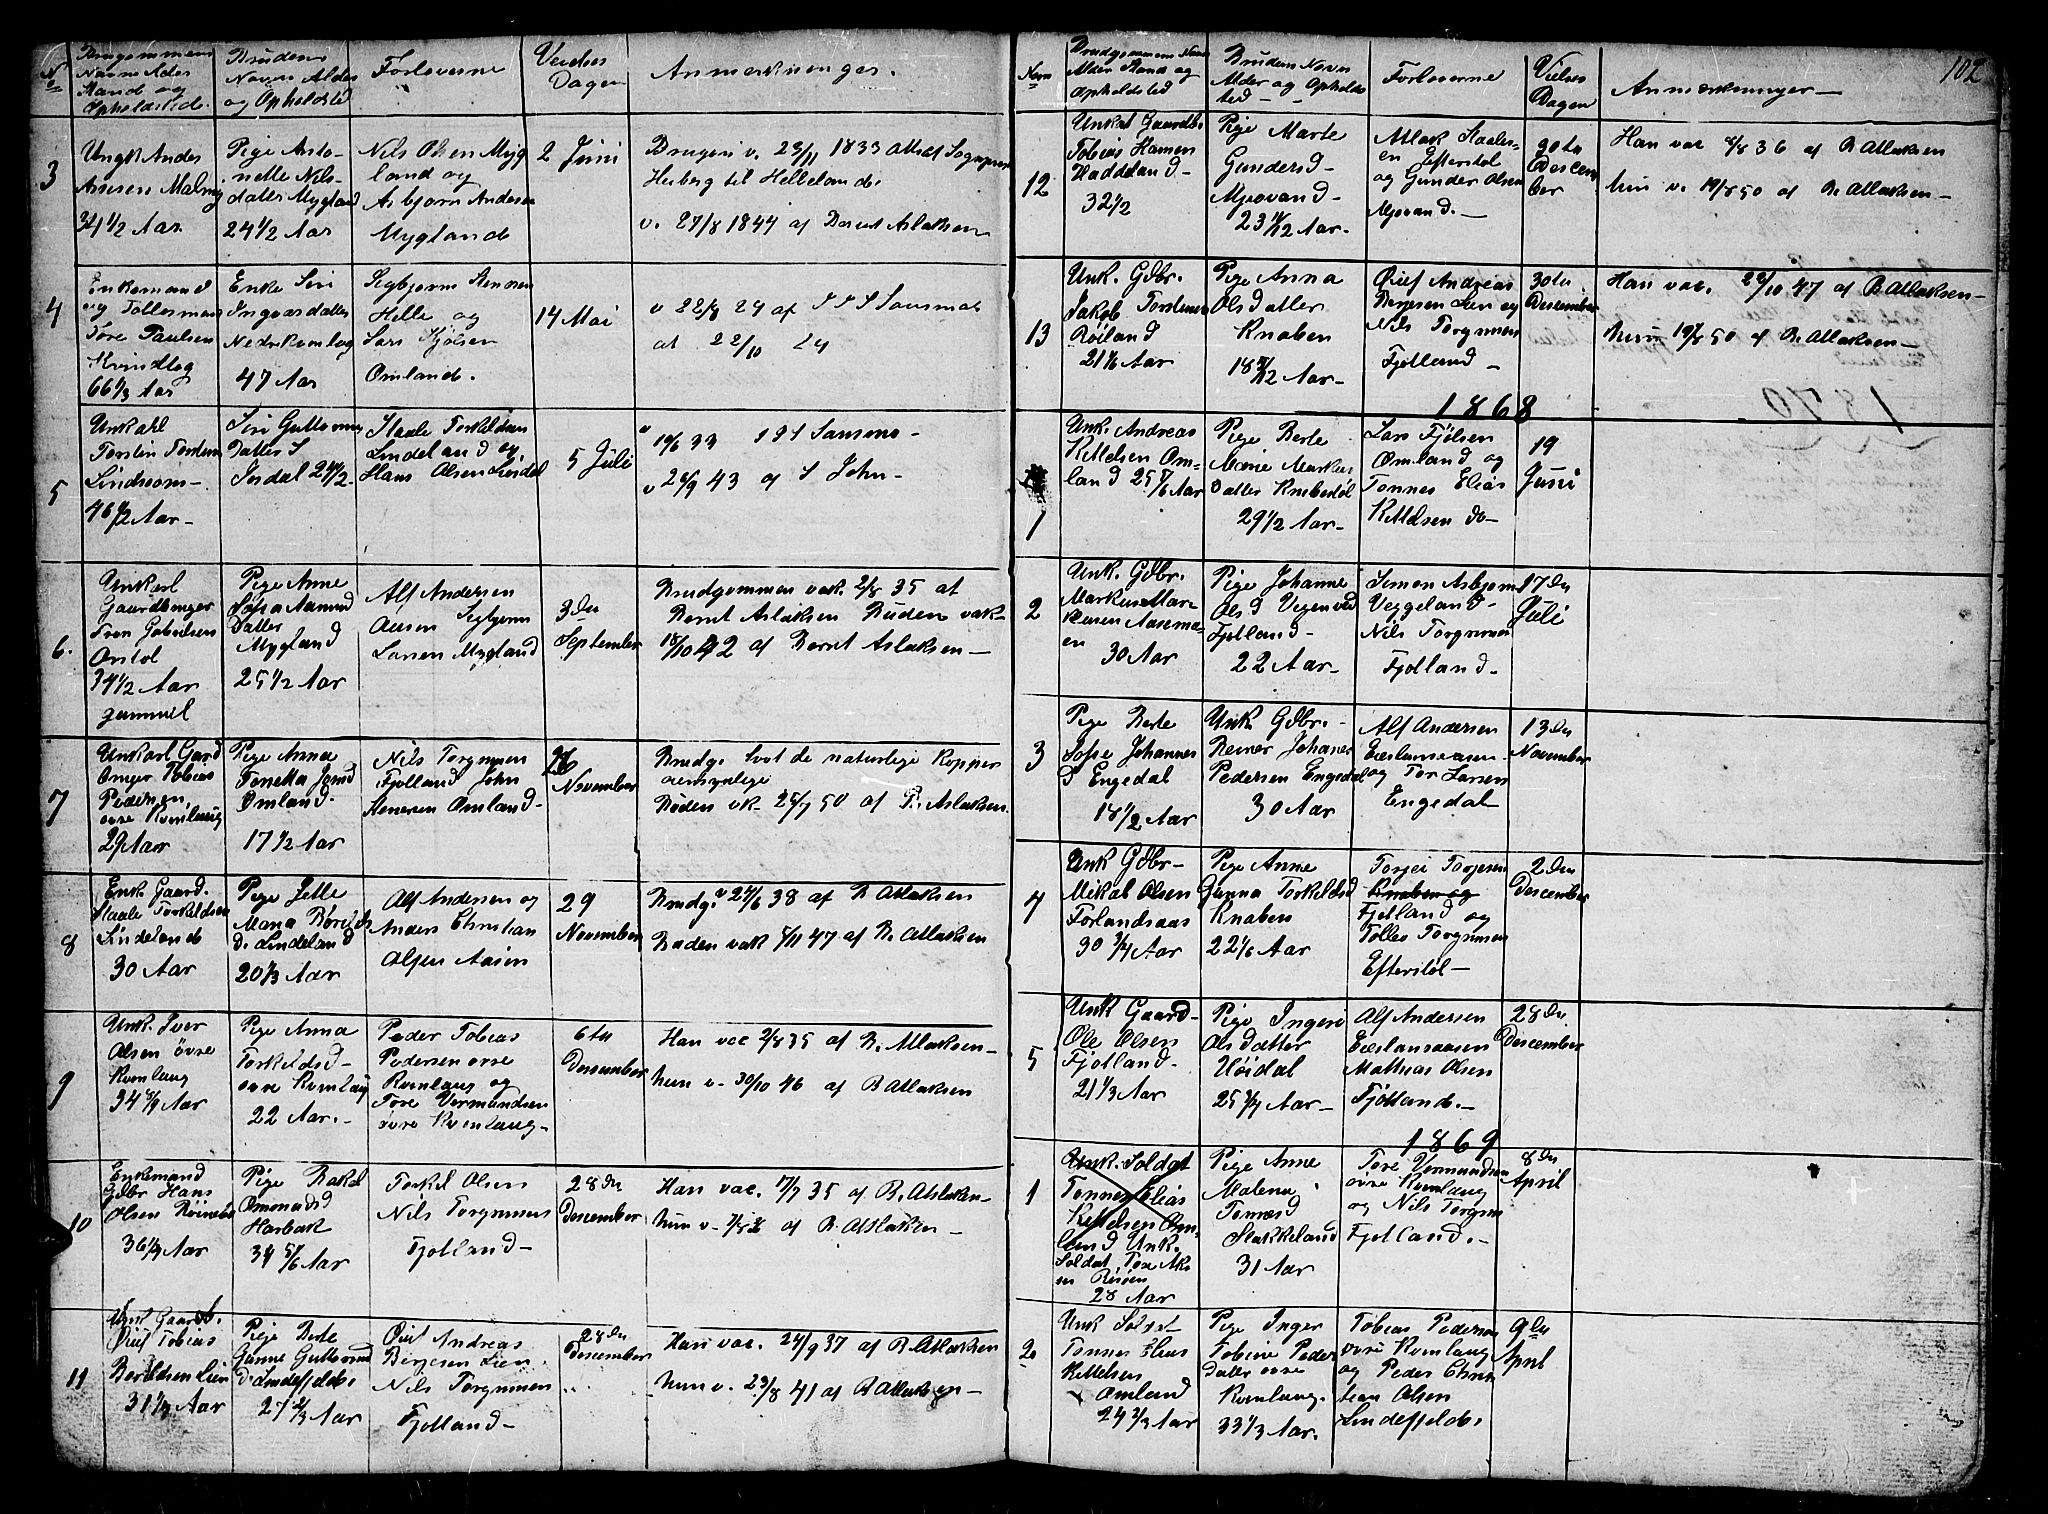 No
Brugommens
Navne Alder
Stand og
Opholdstede.
Bruden
Navn Alder
og Opholdsted
Forloverne
Veidses
Dagen
Anmerkninger.
3
Ungk Andes
Assesen Malmy
34 1/2 Aar
Pige Anto-
nette Nils-
datter Mygland
24 1/2 Aar
Nils Olsen Myg
land og
Asbjørn Andersen
Mygland
2 Juni
Brugom v. 23/11 1833
Heiberg til Helleland.
v. 27/8 1844 af Bernt Aslaksen
4
Enkemand
og Tollesmand
Tore Paulsen
Kvindlog
66 1/3 Aar
Enke Siri
Ingvarsdatter
Nedrekvinlog
47 Aar
Sigbjørn Stensen
Helle og
Lars Kjølsen
Omland.
14 Mai
v 22/8 24 af
at 22/10 24
5
Unkahl
Torstin Torstens
Lindeom-
46 1/2 Aar-
Siri Guttorms
Datter S
Josdal 24 1/2-
Staale Torkildsen
Lindeland og
Hans Olsen Lindel
5 Juli
v 19/6 33
v 26/9 43 af S John-
6.
Unkarl
Gaardbruger
Sven Gabrilsen
Ontol
34 1/2 Aar
gammel
Pige Anne
Sofia Aamund
Datter
Mygland
25 1/2 Aar
Alf Andersen
Aasen Sigbjørn
Larsen Mygland
3 Die
September
Brudgommen vak. 2/8 35 at
Bernt Aslaksen Buden vak-
18/10 42 af Bernt Aslaksen-
7
Unkarl Gard
bruger Tobias
Pedersen,
øvre Kvinlaug
29 Aar
Pige Anna
Tonetta Jonsd
Omland.
17 1/2 Aar
Nils Torgrimsen
Fjolland John
Stenersen Omland-
26
November
Brudg. hvot de naturlige Kopper
aensynlige
Bøden vk- 25/7 50 af B. Aslaksen.
8
Enk. Gaard.
Staale Torkildsen
Lindeland
30 Aar
Pige Jelle
Mana Børges
d. Lindeland
20 1/3 Aar
Alf Andersen og
Anders Christian
Olsen Aasen
29
November
Brudg. v 24/6 38 af B Atlaksen
Baden vak 8/11 47 af B. Atlaksen
9
Unk. Iver
Olsen øvre
Kvinlaug
34 8/9 Aar
Pige Anna
Torkildsd-
øvre Kvinlaug
22 Aar.-
Peder Tobias
Pedersen øvre
Kvinlaug og
Tore Vermundsen
øvre Kvinlaug-
6te
Dessember
Han vac 2/8 35 af B. Atlaksen-
hun v- 30/10 46 af B Atlaksen
10
Enkemand
Gdbr Hans
Olsen
36 1/4 Aar
Pige Rakel
Omondsd
Harbak
34 5/6 Aar
Torkel Olsen
Nils Torgrimsen
Fjotland-
28 De
Descember
Han vac. 17/7 35 af B. Atslaksen-
hun v- af B. Atslaksen-
11
Unk Gaardb.
Øiuf Tobias
Beraldsen Lien
31 1/3 Aar
Pige Berte
Gunne Guttormsd
Lindefjeld.
27 2/3 Aar
Øiuf Andreas
Børgesen Lien.
Nils Torgrimsen
Fjotland-
28 De
Descember
Han vac. 24/9 37 af B. Atlaksen
hun v. 23/8 41 af B Atlaksen-
102
Nero
Brudgommens Navn
Alder Stand og
Opholdsted
Brudens Navn
Alder og Opholds
ted
Forloverne
Vielses
Dagen
Anmerkninger-
12
Unkal Gaardb.
Tobias Hansen
Haddeland-
32 1/2
Pige Marte
Gundersd-
Mjovand-
23 11/12 Aar-
Atlak Staales-
en Efterstol
og Gunder Olsen
Mjovand.-
30te
Descem
ber
Han vac 8/8 36 af B Atlaksen
hun v. 19/8 50 af B. Atlaksen-
13
Unk. Gdbr.
Jakob Torstensen
Røiland
21 1/6 Aar
Pige Anna
Olsdatter
Knaben
18 5/12 Aar-
Øiuf Andreas
Børgesen Lien og
Nils Torgrimsen
Fjotland-
30te
Descember
Han vac. 29/10 47 af B Atlaksen-
hun 19/8 50 af B. Atlaksen-
1868
1870
1
Unk. Andreas
Kittelsen Om-
land 25 5/6 Aar
Pige Berte
Marie Markus
Datter Knebestøl
29 1/2 Aar-
Lars Fjølsen
Omland og
Tonnes Elias
Kittelsen do-
19
Juni
2
Unk. Gdbr.
Markus Mar-
kusen
30 Aar
Pige Johanne
Olsd Vegenved
Fjotland-
22 Aar-
Simon Asbjørn
Veggeland-
Nils Torgrimsen
Fjotland-
17 De
Juli
3
Pige Berte
Sofie Johannes
D Engedal
18 1/2 Aar
Unk Gdbr.-
Reiner Johanes
Pedersen Engedal
30 Aar
Alf Andersen
Eieslansaasen-
og Tor Larsen
Engedal
13 De
November
4
Unk Gdbr-
Mikal Olsen
Forlandsaas
30 3/4 Aar
Pige Anne
Gunna Torkildsd
Knaben
22 1/6 Aar
Torjei Torjesen
Knaben og
Fjotland og
Tolles Torgrimsen
Efterstøl-
2 De
Descember
5
Unk Gaard-
Ole Olsen
Fjotland-
21 1/3 Aar
Pige Ingeri
Olsdatter
Høidal
25 3/4 Aar-
Alf Andersen
Eieslansaasen
Mathias Olsen
Fjotland.-
28 De
Descember
1869
1
Unk. Soldat
Tønnes Elias
Kittelsen Om-
land Unk.
Soldat, Tore
28 Aar
Pige Anne
Malena
Tonnesd
Stakkeland
31 Aar
Tore Vermundsen
øvre Kvinlaug
og Nils Torgrim
Fjotland.-
8 De
April
2
Unk Soldat
Tonnes Elias
Kittelsen
Omland
24 2/3 Aar
Pige Inger
Tobine Peder
datter øvre
Kvinlaug.
33 1/3 Aar.
Tobias Pedersen
øvre Kvinlaug
og Peder Chris
tian Olsen
Lindefjeld.
9de
April